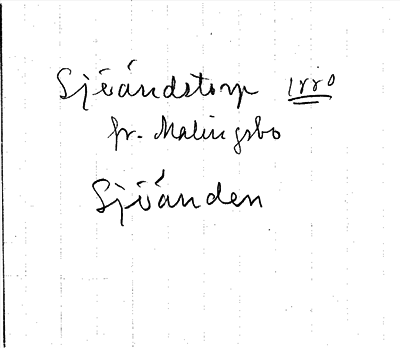 Sjöändstorp 1880
fr. Malingsbo
Sjöänden